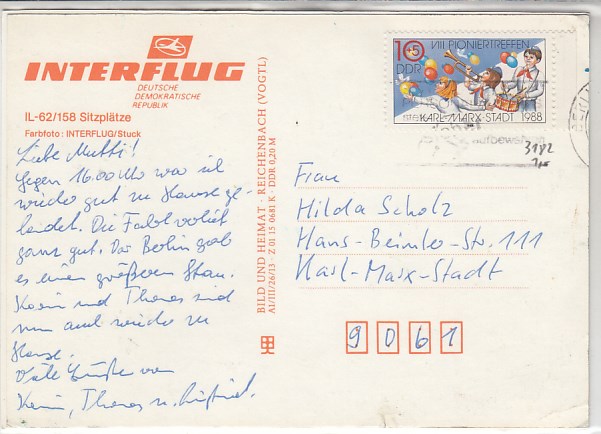 INTERFLUG
DEUTSCHE
DEMOKRATISCHE
REPUBLIK
IL-62/158 Sitzplätze
Farbfoto: INTERFLUG/Stuck
Liebe Mutti!
Gegen 16.00 Uhr war ich
wieder gut zu Hause ge-
landet. Die Fahrt verlief
ganz gut. Vor Berlin gab
es einen größeren Stau.
Karin und Thomas sind
nun auch wieder zu
Hause.
Viele Grüße von
Karin, Thomas u.
BILD UND HEIMAT REICHENBACH (VOGTL)
A1/III/26/13 · Z 01 15 0681 K · DDR 0,20 M
10+5
VIII. PIONIERTREFFEN
DDR
KARL-MARX-STADT 1988
Aufbewahrung
3182
Frau
Hilda Scholz
Hans-Beimler-Str. 111
Karl-Marx-Stadt
9061